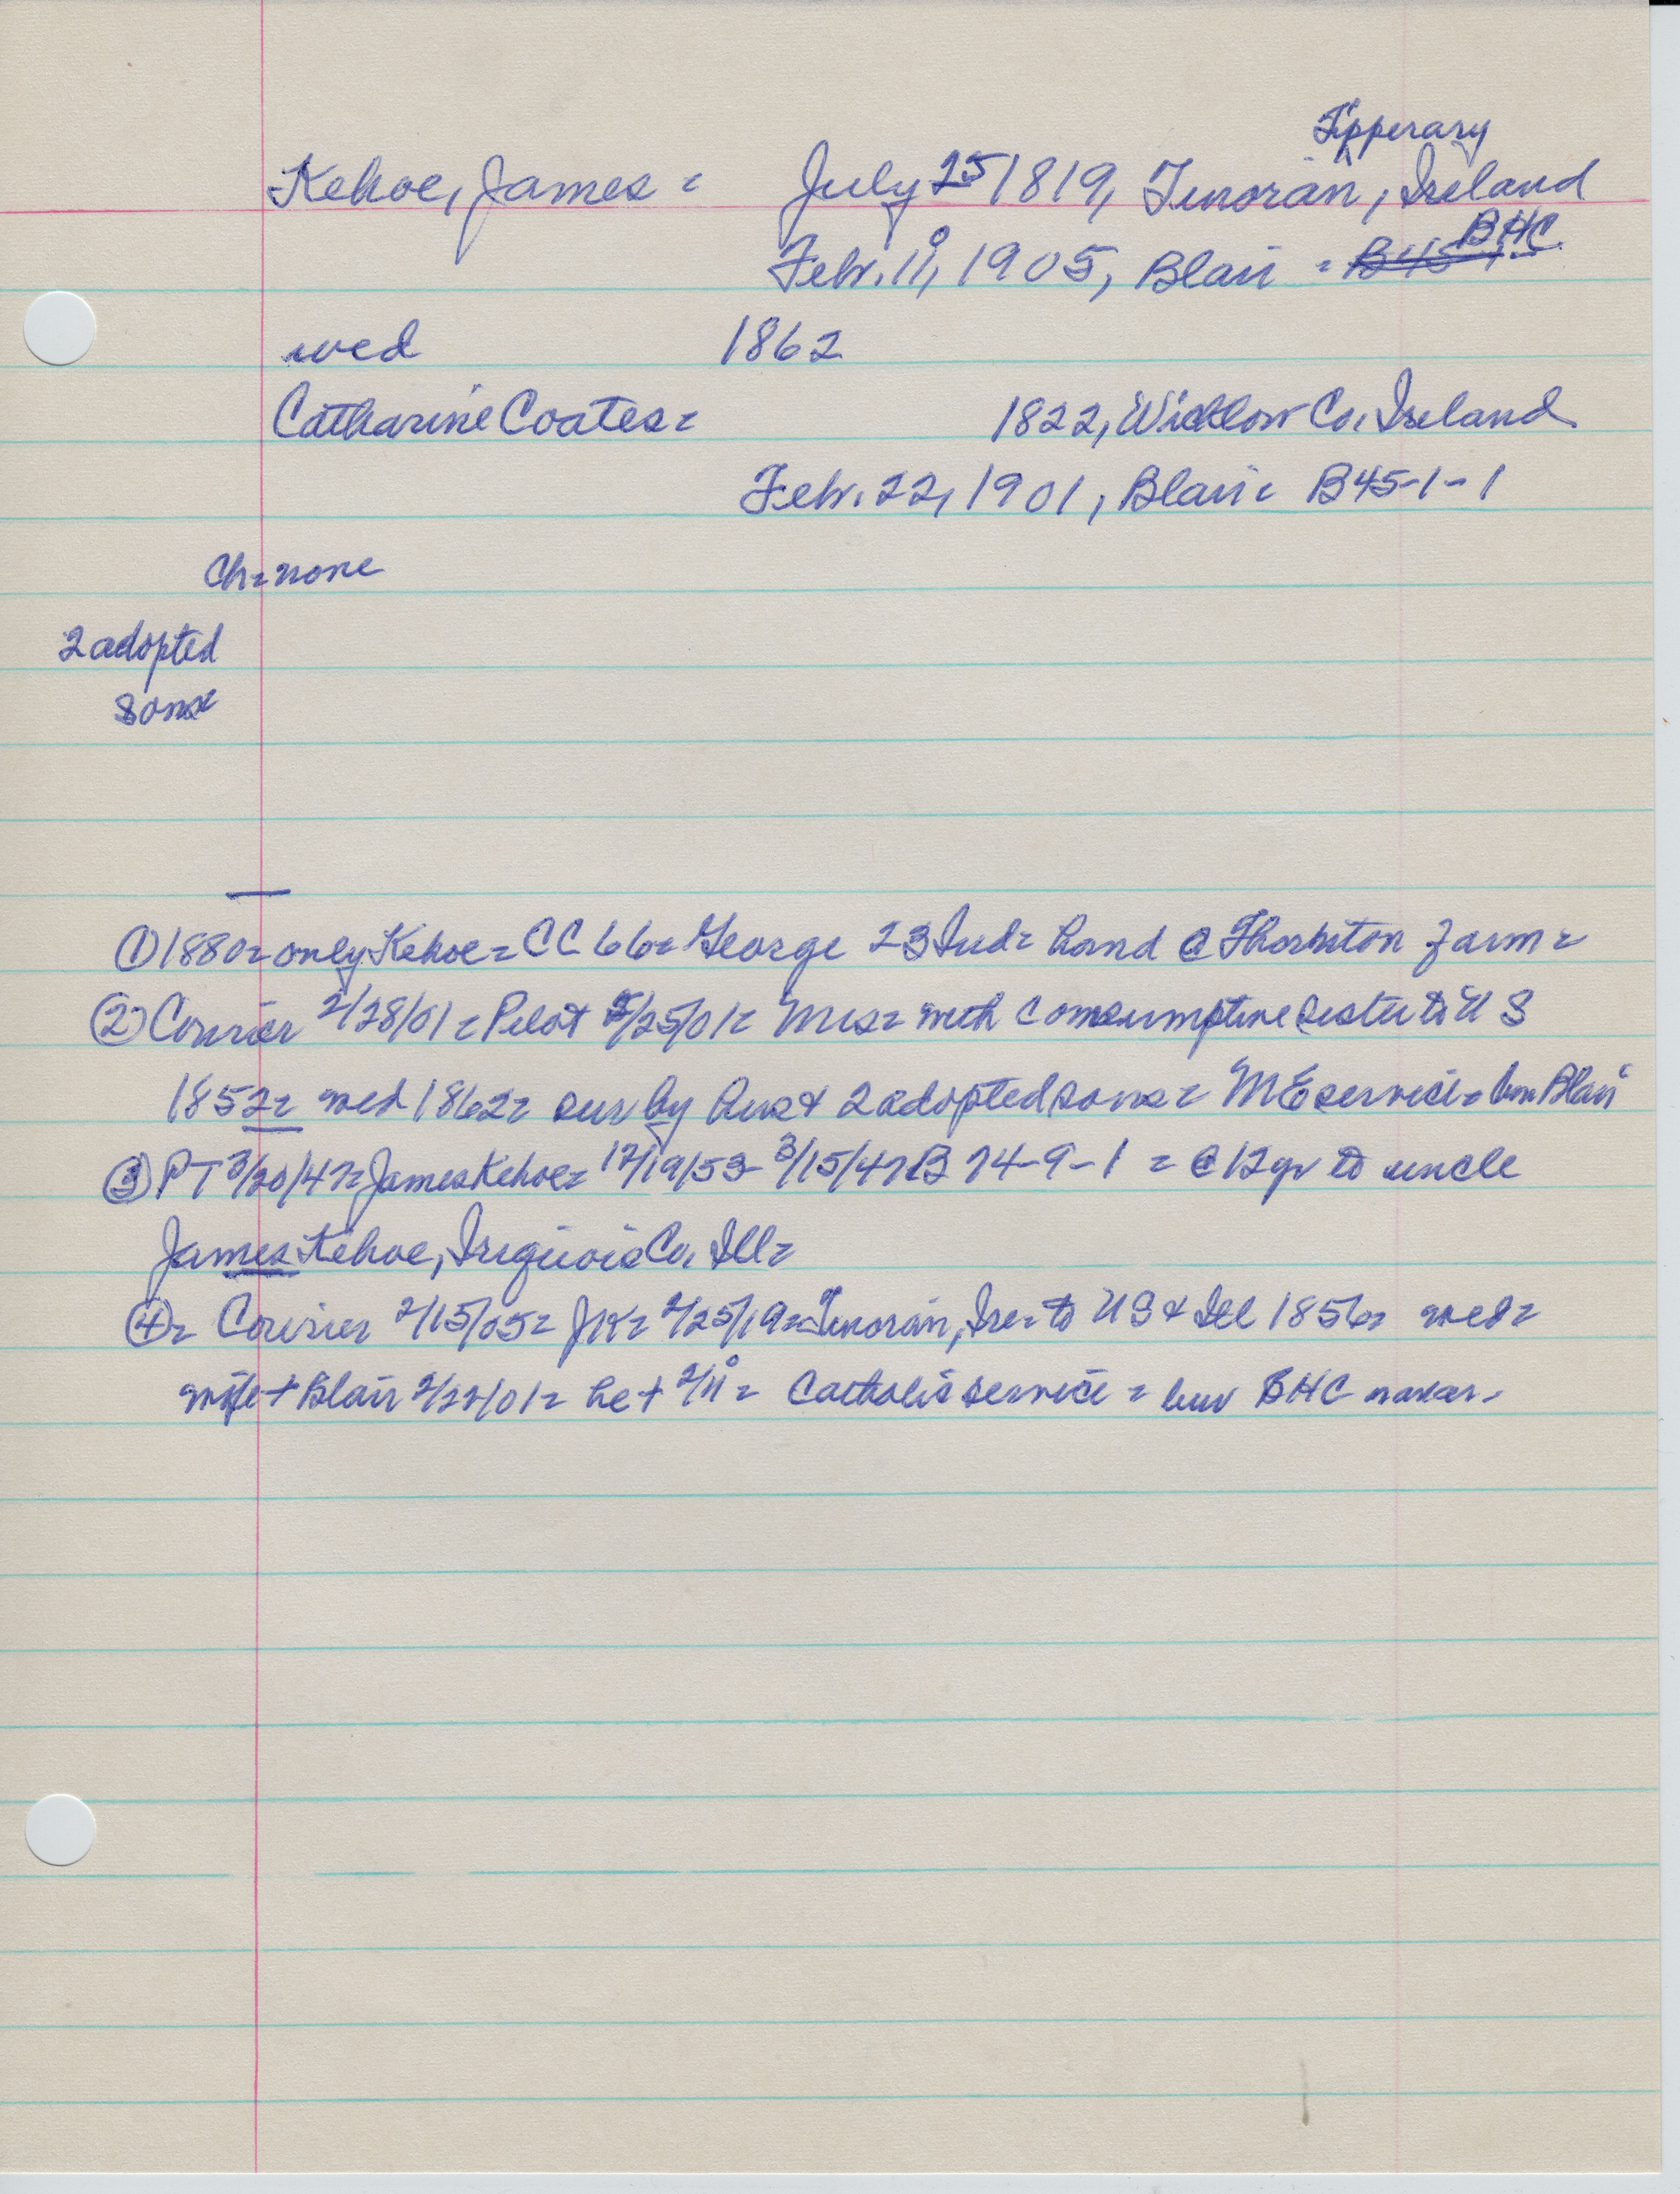 Tipperary
Kehoe, James = July 25 1819, Tinoran, Ireland
BHC
Febr. 11, 1905, Blair = B45-1-
wed 1862
Catharine Coates = 1822, Wicklow Co. Ireland
Febr. 22, 1901, Blair = B45-1-1
Ch = none
2 adopted
sons
① 1880 = only Kehoe = CC 66 = George 23 Ind = hand @ Thornton farm =
② Courier 2/28/01 = Pilot 2/25/01 = Mrs = with consumptive sister to US
1852 = wed 1862 = sur by hus & 2 adopted sons = ME service = bur Blair
③ PT 3/20/47 = James Kehoe = 12/19/53 - 3/15/47 B 74-9-1 = @ 12 yr to uncle
James Kehoe, Iriquois Co. Ill =
④ = Courier 2/15/05 = JK = 2/25/19 = Tinoran, Ire = to US & Ill 1856 = wed =
wife + Blair 2/22/01 = he + 2/11 = Catholic service = bur BHC